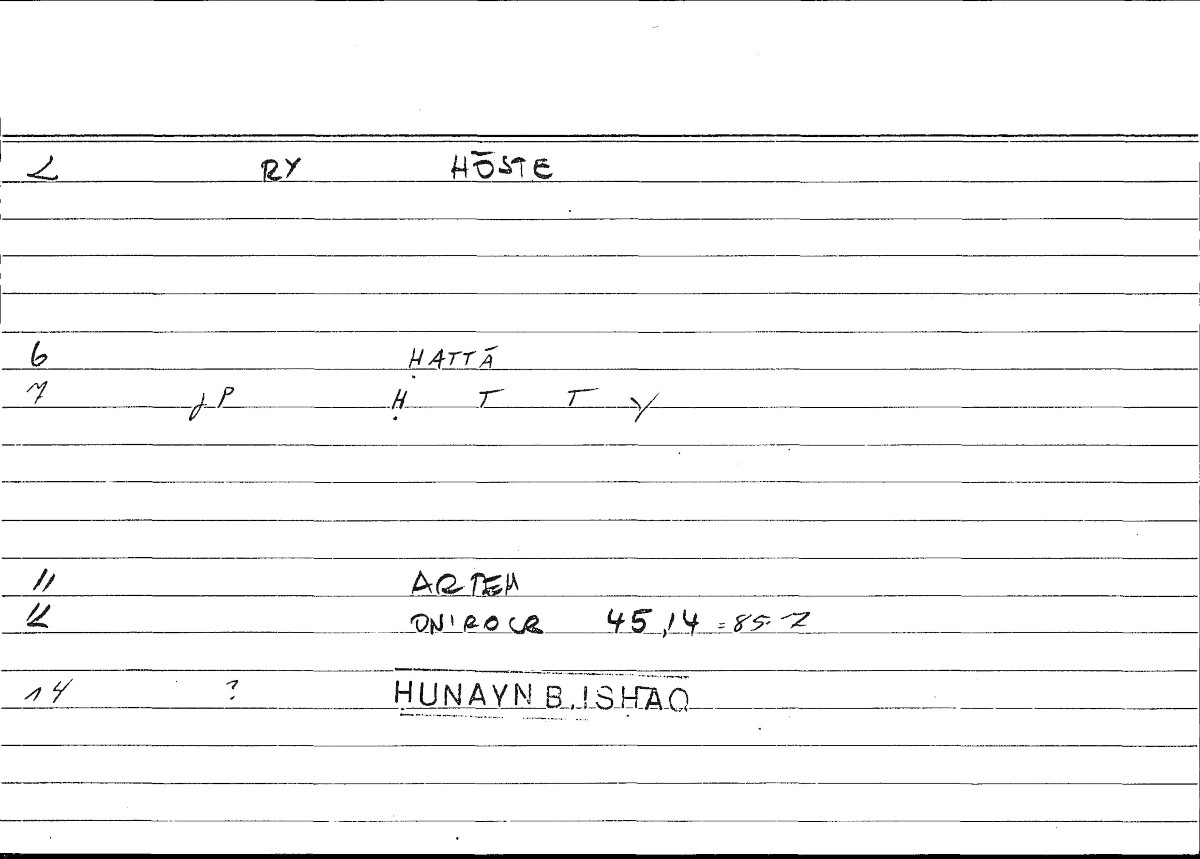 2 RY HŌSTE
6 ḤATTĀ
7 JP Ḥ T T Y
11 ARTEM
12 ONIROCR 45,14 = 85.7
14 ? ḤUNAYN B. ISḤAQ